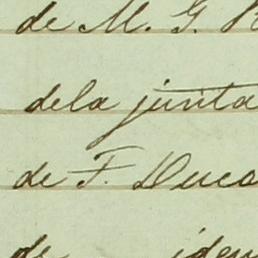 de M. G.
dela junta
de F. Duca
de iden